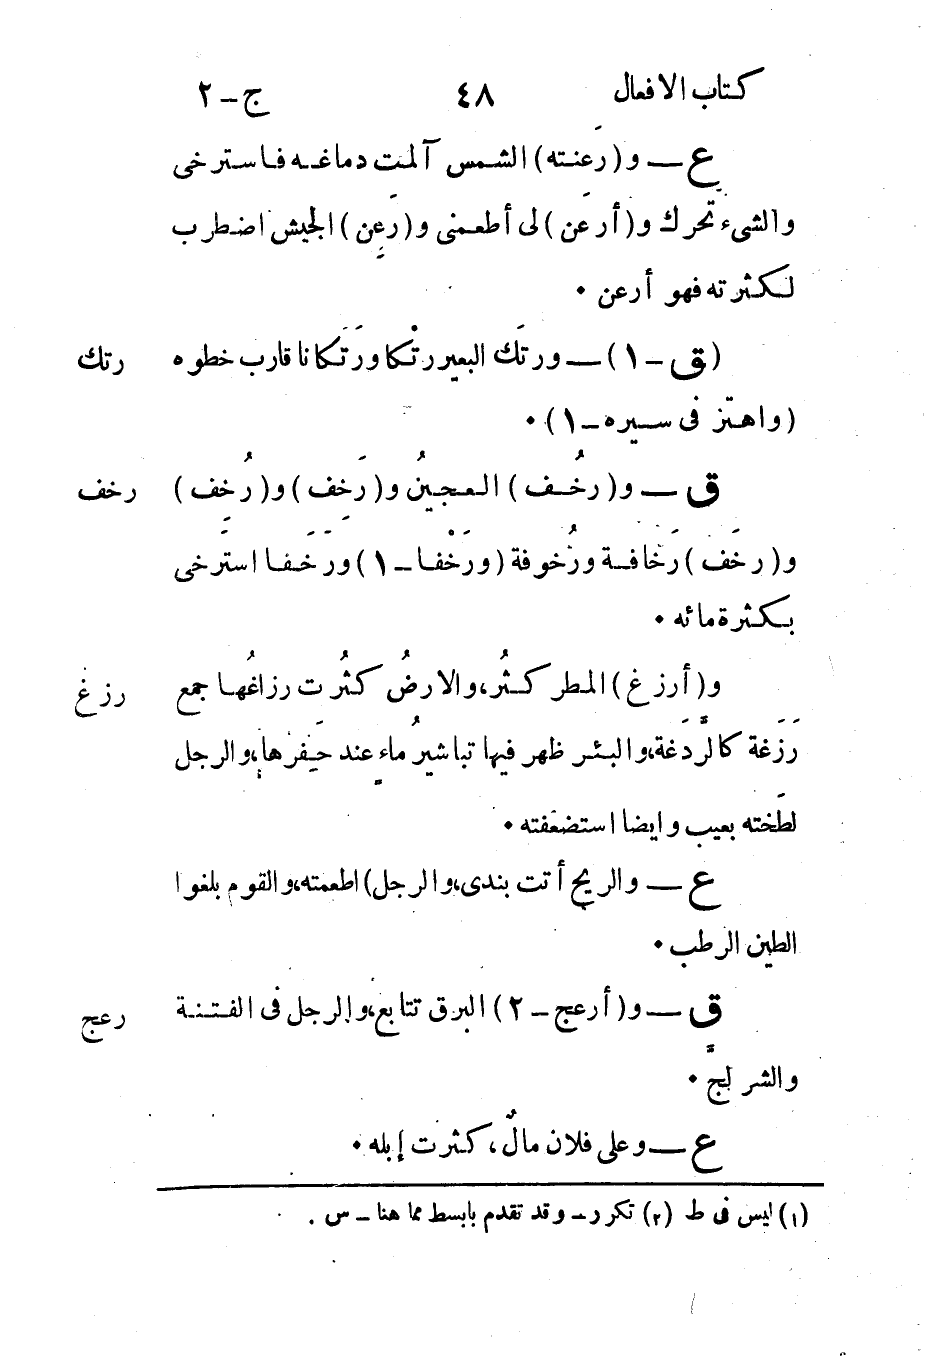 كتاب الافعال ٤٨ ج - ٢
ع — و (رعَنته) الشمس آلمت دماغه فاسترخى
والشىء تحرك و (أرعَن) لى أطعمنى و (رَعِن) الجيش اضطرب
لكثرته فهو أرعن •
(ق - ١) — ورتَك البعير رتْكا ورَتَكانا قارب خطوه رتك
(واهتز فى سيره - ١) •
ق — و (رخُف) العجينُ و (رَخِف) و (رُخِف) رخف
و (رخَف) رَخافة ورُخوفة (ورَخْفا - ١) ورَخَفا استرَخى
بكثرة مائه •
و (أرزغ) المطر كثُر، والارضُ كثُرت رزاغُها جمع رزغ
رَزَغة كالرَّدَغة، والبئر ظهر فيها تباشيرُ ماءٍ عند حَفرِها، والرجل
لطَخته بعيب وايضا استضعفته •
ع — والريح أتت بندى، والرجل) اطعمته، والقوم بلغوا
الطين الرطب •
ق — و (أرعج - ٢) البرق تتابع، والرجل فى الفتنة رعج
والشر لجَّ •
ع — وعلى فلان مالٌ، كثرت إبله •
(١) ليس فى ط (٢) تكرر - وقد تقدم بابسط مما هنا - س .